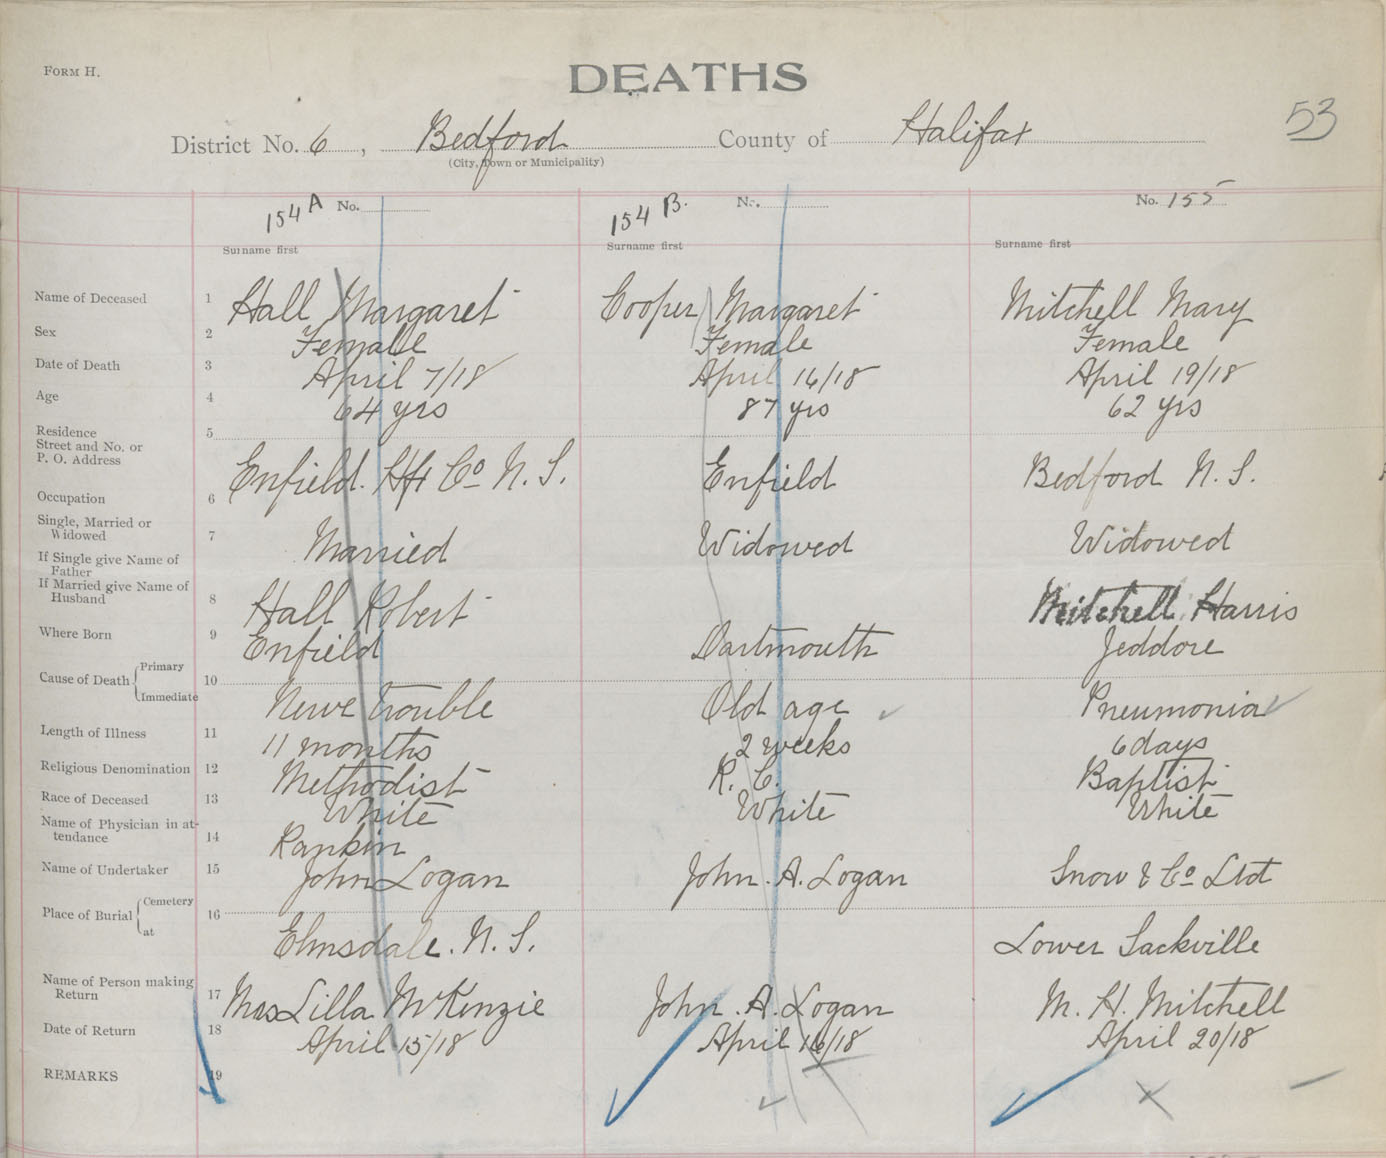 FORM H.
DEATHS
53
District No. 6, Bedford County of Halifax
(City, Town or Municipality)
154 A No. 154 B. No. No. 155
Surname first Surname first Surname first
Name of Deceased 1 Hall Margaret Cooper Margaret Mitchell Mary
Sex 2 Female Female Female
Date of Death 3 April 7/18 April 16/18 April 19/18
Age 4 64 yrs 87 yrs 62 yrs
Residence 5
Street and No. or
P. O. Address Enfield. Hfx Co N. S. Enfield Bedford N. S.
Occupation 6
Single, Married or
Widowed 7 Married Widowed Widowed
If Single give Name of
Father
If Married give Name of
Husband 8 Hall Robert Mitchell Harris
Where Born 9 Enfield Dartmouth Jeddore
Cause of Death Primary 10
Immediate Nerve trouble Old age Pneumonia
Length of Illness 11 11 months 2 weeks 6 days
Religious Denomination 12 Methodist R. C. Baptist
Race of Deceased 13 White White White
Name of Physician in at-
tendance 14 Rankin
Name of Undertaker 15 John Logan John. A. Logan Snow & Co Ltd
Place of Burial Cemetery 16
at Elmsdale. N. S. Lower Sackville
Name of Person making
Return 17 Mrs Lilla McKenzie John. A. Logan M. H. Mitchell
Date of Return 18 April 15/18 April 16/18 April 20/18
REMARKS 19